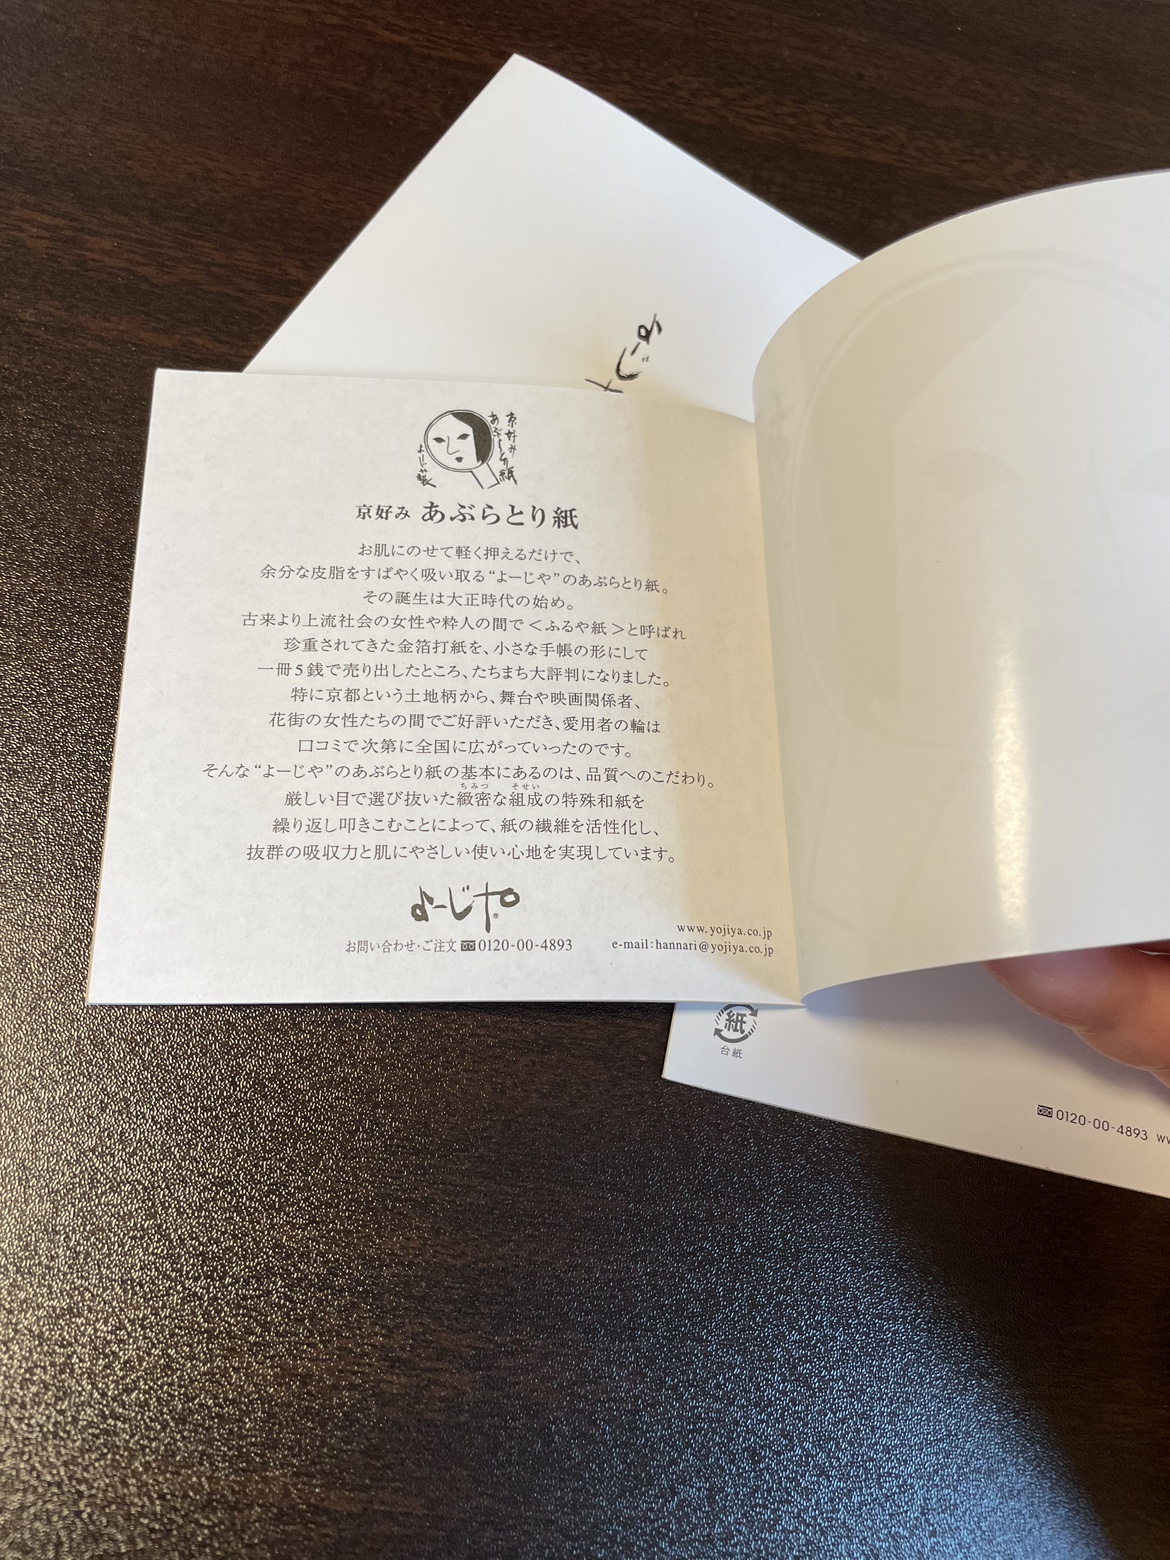 よーじや
京好み
あぶらとり紙
よーじや製
京好み あぶらとり紙
お肌にのせて軽く押えるだけで、
余分な皮脂をすばやく吸い取る“よーじや”のあぶらとり紙。
その誕生は大正時代の始め。
古来より上流社会の女性や粋人の間で＜ふるや紙＞と呼ばれ
珍重されてきた金箔打紙を、小さな手帳の形にして
一冊5銭で売り出したところ、たちまち大評判になりました。
特に京都という土地柄から、舞台や映画関係者、
花街の女性たちの間でご好評いただき、愛用者の輪は
口コミで次第に全国に広がっていったのです。
そんな“よーじや”のあぶらとり紙の基本にあるのは、品質へのこだわり。
ちみつ そせい
厳しい目で選び抜いた緻密な組成の特殊和紙を
繰り返し叩きこむことによって、紙の繊維を活性化し、
抜群の吸収力と肌にやさしい使い心地を実現しています。
よーじや®
www.yojiya.co.jp
お問い合わせ・ご注文 0120-00-4893 e-mail:hannari@yojiya.co.jp
紙
台紙
0120-00-4893